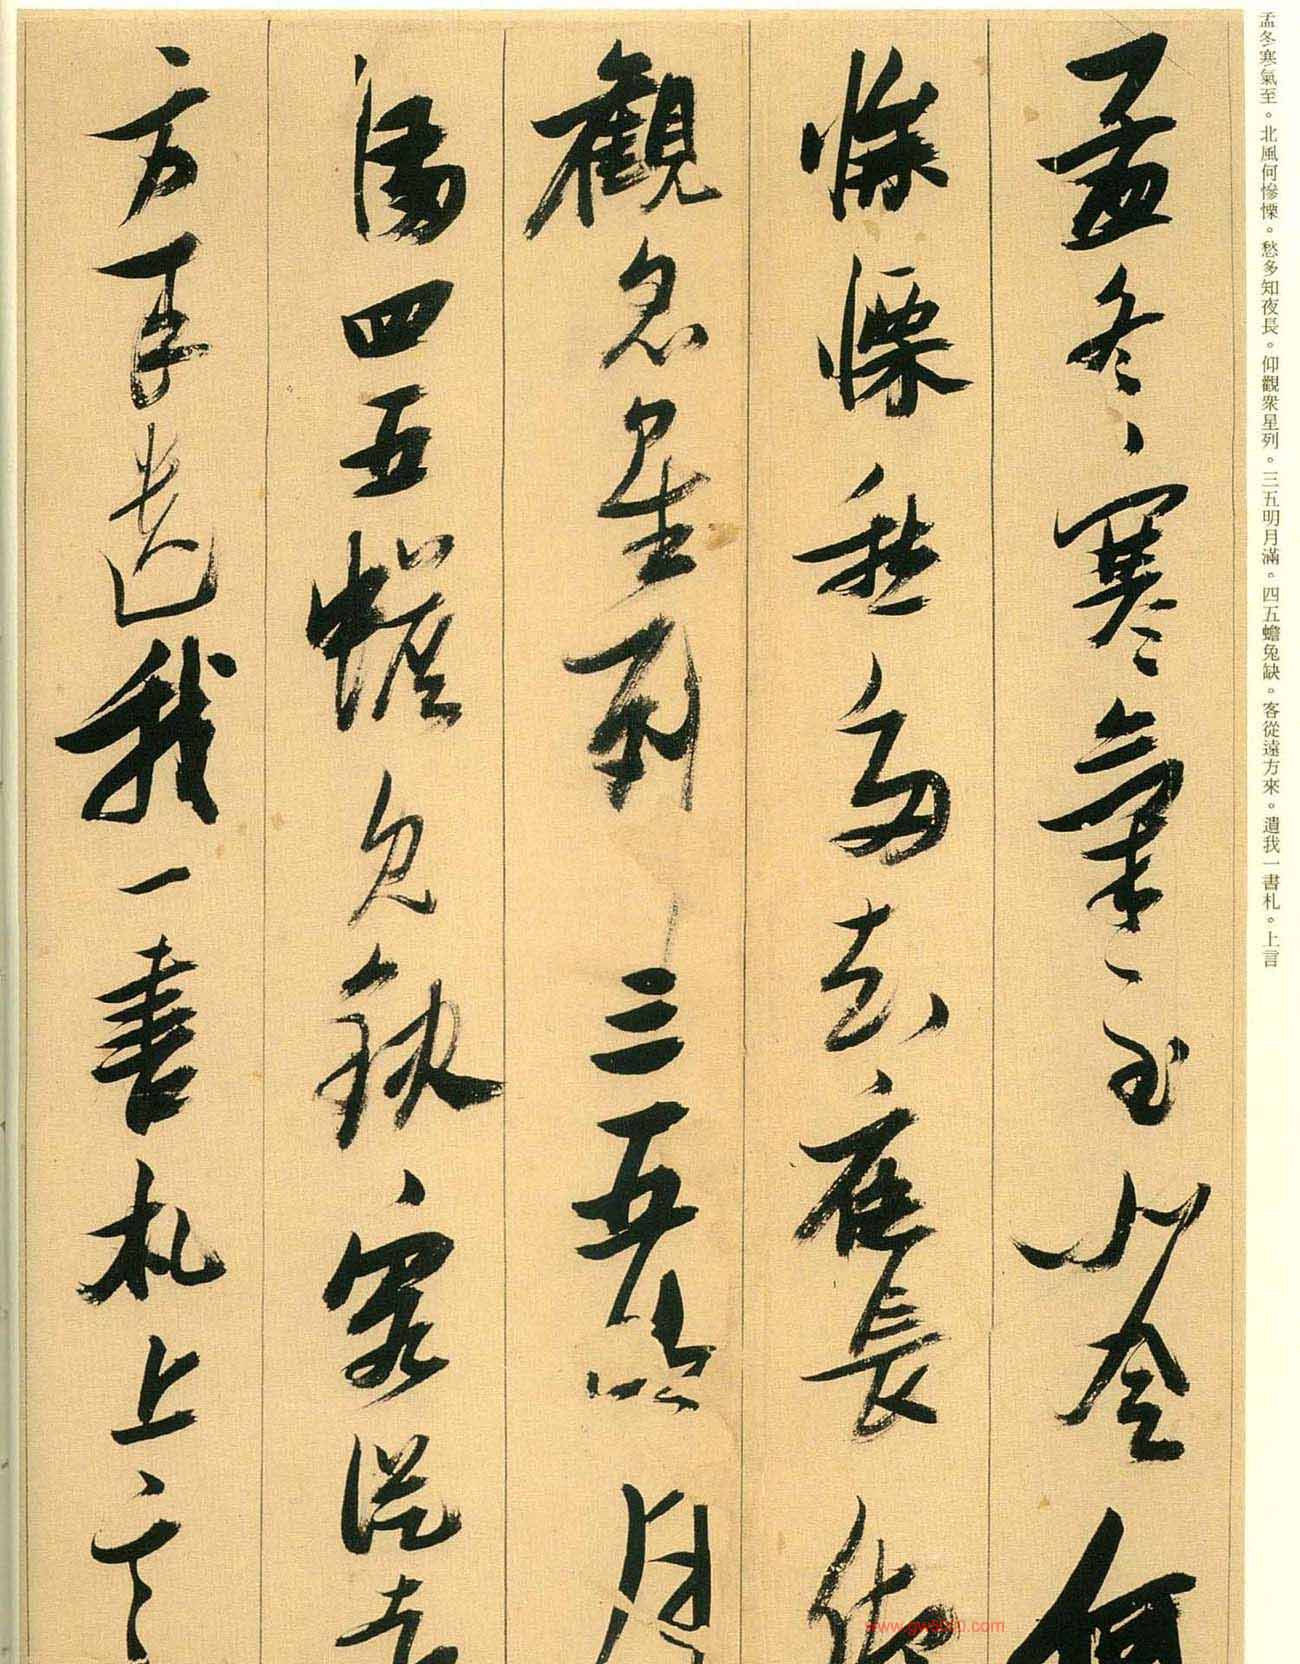 孟冬寒氣至北風何
慘慄愁多知夜長仰
觀眾星列三五明月
滿四五蟾兔缺客從遠
方來遺我一書札上言
孟冬寒氣至。北風何慘慄。愁多知夜長。仰觀衆星列。三五明月滿。四五蟾兔缺。客從遠方來。遺我一書札。上言